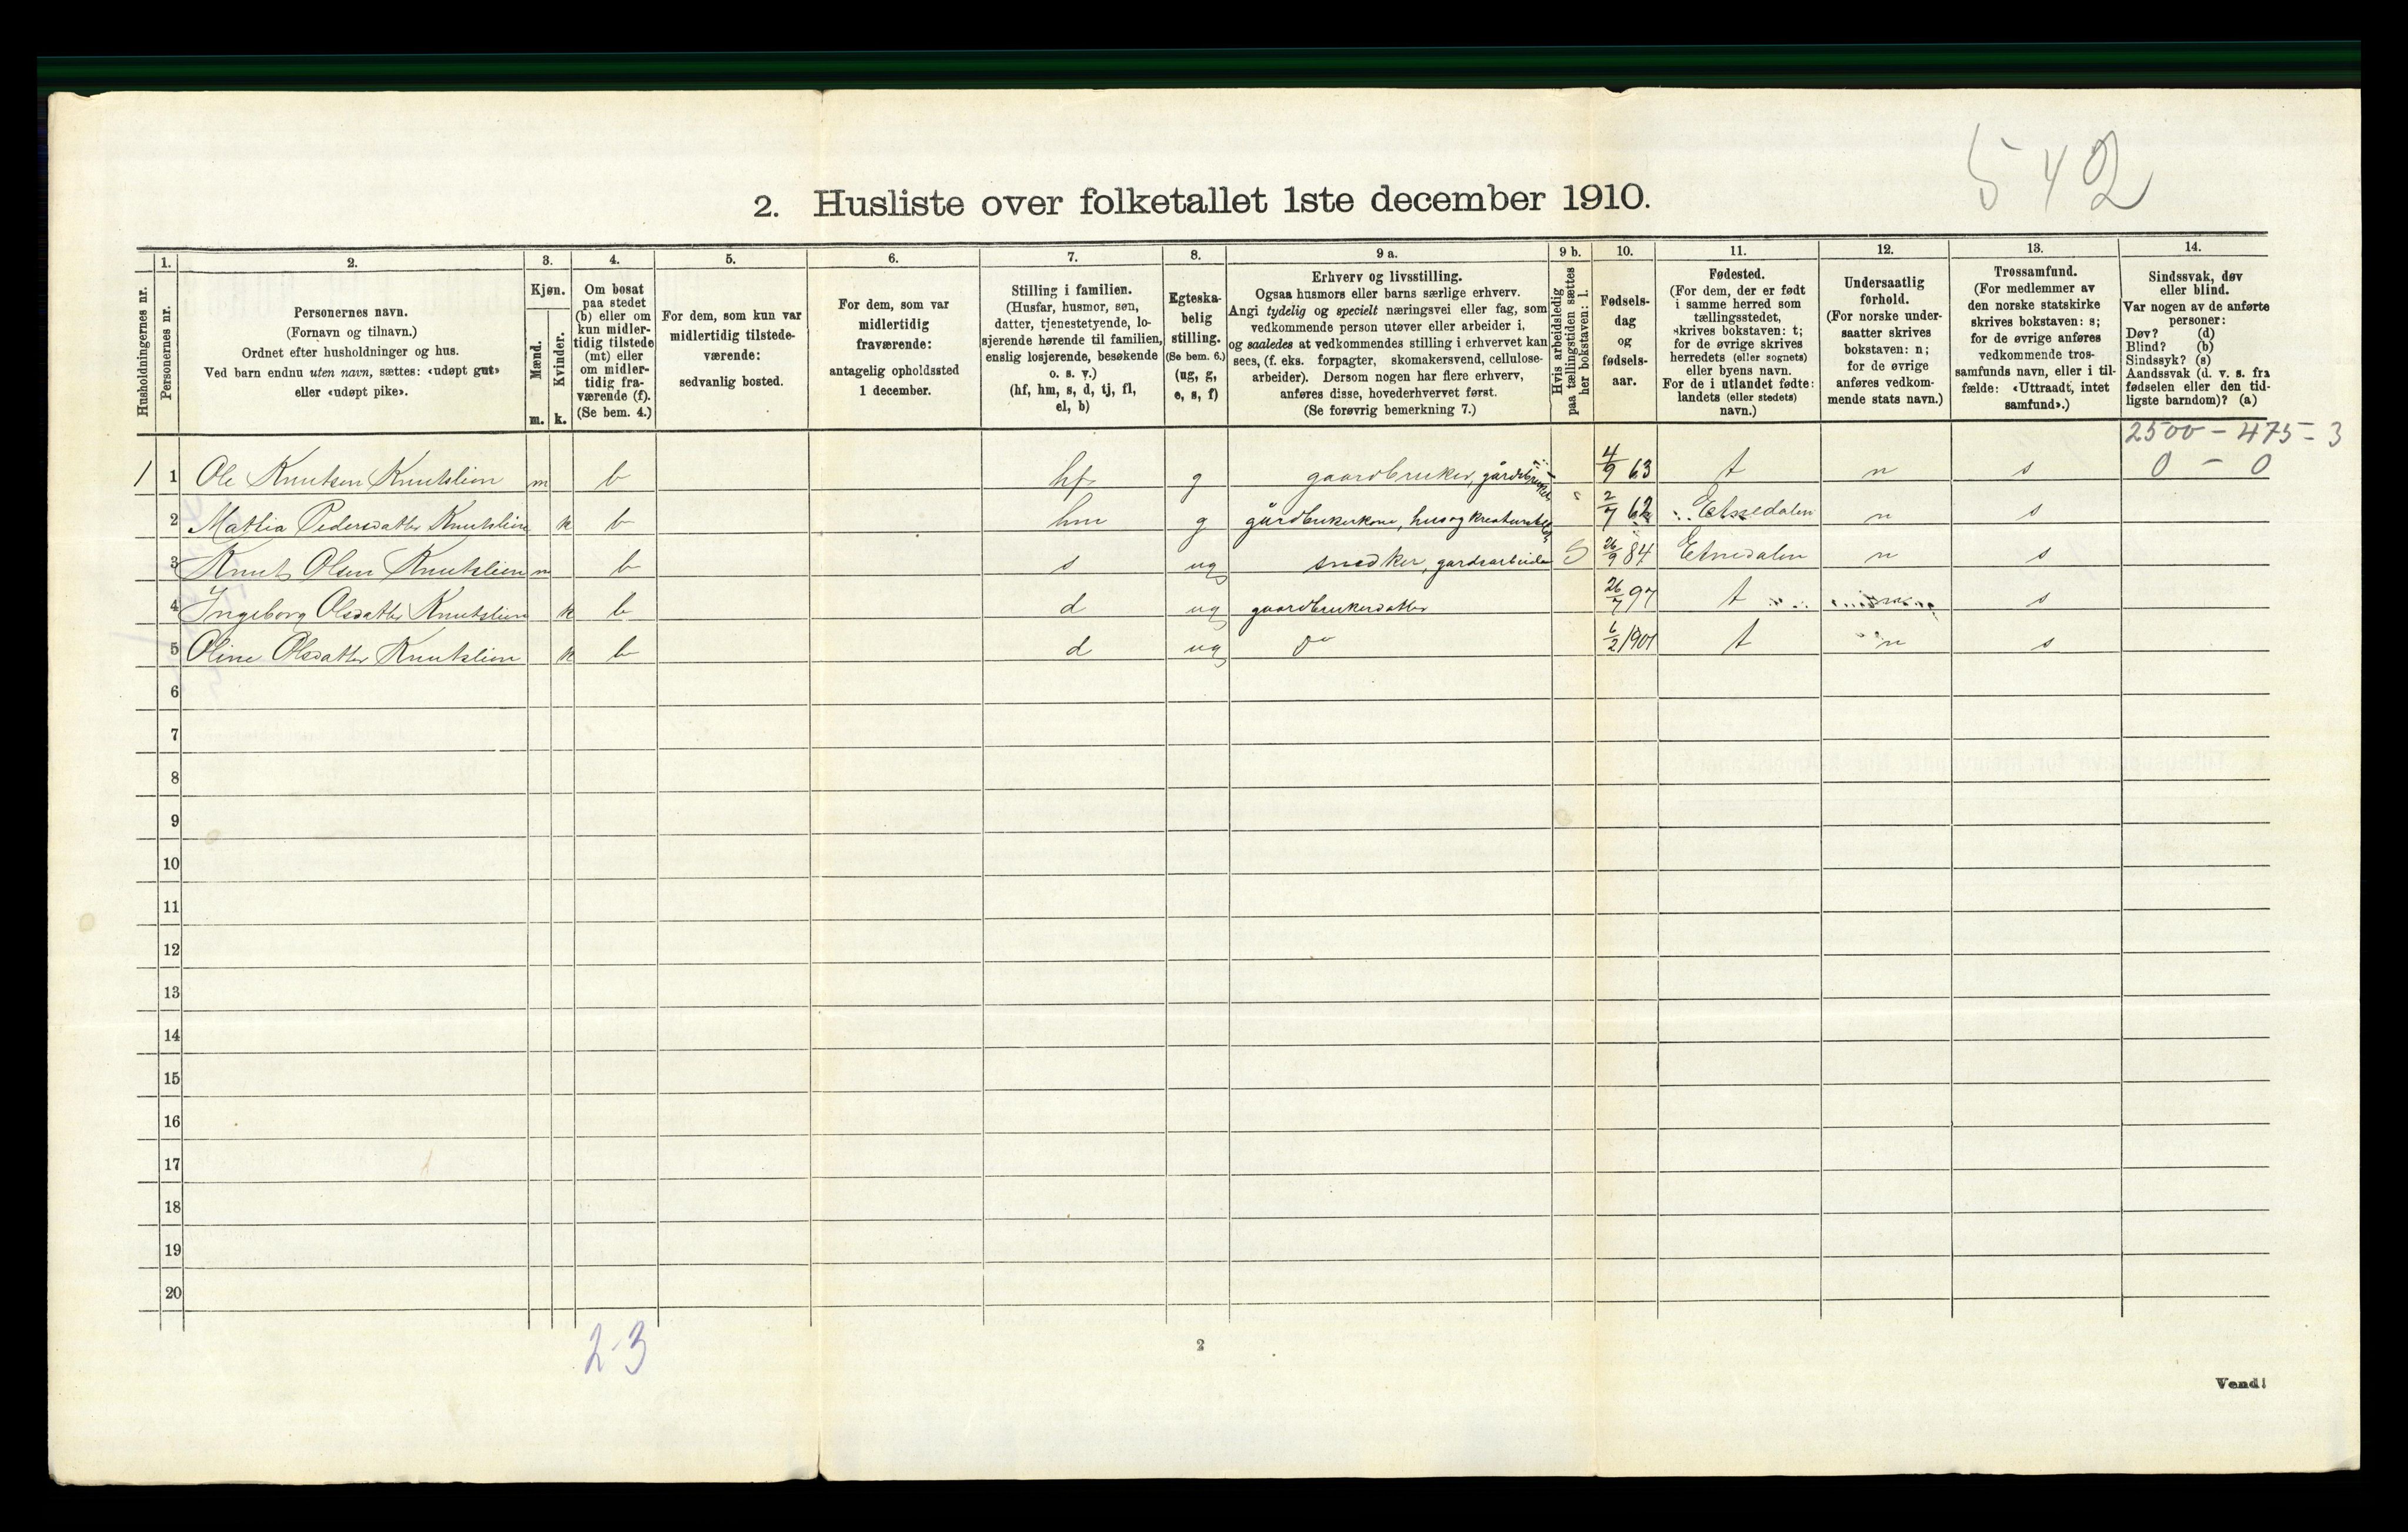 542
2. Husliste over folketallet 1ste december 1910.
Husholdningernes nr.
1.
Personernes nr.
2.
Personernes navn.
(Fornavn og tilnavn.)
Ordnet efter husholdninger og hus.
Ved barn endnu uten navn, sættes: «udøpt gut»
eller «udøpt pike».
3.
Kjøn.
Mænd.
Kvinder.
m. k.
4.
Om bosat
paa stedet
(b) eller om
kun midler-
tidig tilstede
(mt) eller
om midler-
tidig fra-
værende (f).
(Se bem. 4.)
5.
For dem, som kun var
midlertidig tilstede-
værende:
sedvanlig bosted.
6.
For dem, som var
midlertidig
fraværende:
antagelig opholdssted
1 december.
7.
Stilling i familien.
(Husfar, husmor, søn,
datter, tjenestetyende, lo-
sjerende hørende til familien,
enslig losjerende, besøkende
o. s. v.)
(hf, hm, s, d, tj, fl,
el, b)
8.
Egteska-
belig
stilling.
(Se bem. 6.)
(ug, g,
e, s, f)
9 a.
Erhverv og livsstilling.
Ogsaa husmors eller barns særlige erhverv.
Angi tydelig og specielt næringsvei eller fag, som
vedkommende person utøver eller arbeider i,
og saaledes at vedkommendes stilling i erhvervet kan
sees, (f. eks. forpagter, skomakersvend, cellulose-
arbeider). Dersom nogen har flere erhverv,
anføres disse, hovederhvervet først.
(Se forøvrig bemerkning 7.)
9 b.
Hvis arbeidsledig
paa tællingstiden sættes
her bokstaven: l.
10.
Fødsels-
dag
og
fødsels-
aar.
11.
Fødested.
(For dem, der er født
i samme herred som
tællingsstedet,
skrives bokstaven: t;
for de øvrige skrives
herredets (eller sognets)
eller byens navn.
For de i utlandet fødte:
landets (eller stedets)
navn.)
12.
Undersaatlig
forhold.
(For norske under-
saatter skrives
bokstaven: n;
for de øvrige
anføres vedkom-
mende stats navn.)
13.
Trossamfund.
(For medlemmer av
den norske statskirke
skrives bokstaven: s;
for de øvrige anføres
vedkommende tros-
samfunds navn, eller i til-
fælde: «Uttraadt, intet
samfund».)
14.
Sindssvak, døv
eller blind.
Var nogen av de anførte
personer:
Døv? (d)
Blind? (b)
Sindssyk? (s)
Aandssvak (d. v. s. fra
fødselen eller den tid-
ligste barndom)? (a)
2500 - 475 - 3
0 - 0
1 1 Ole Knutsen Knutslien m b hf g gaardbruker, gårdsbruker 4/9 63 t n s
2 Mathia Pedersdatter Knutslien k b hm g gårdbrukerkone, hus og kreaturstell 2/7 62 Etnedalen n s
3 Knut Olsen Knutslien m b s ug snedker, gardsarbeider 26/9 84 Etnedalen n s
4 Ingeborg Olsdatter Knutslien k b d ug gaardbrukerdatter 26/7 97 t s
5 Oline Olsdatter Knutslien k b d ug do 6/2 1901 t n s
6
7
8
9
10
11
12
13
14
15
16
17
18
19
20
2-3
2
Vend!